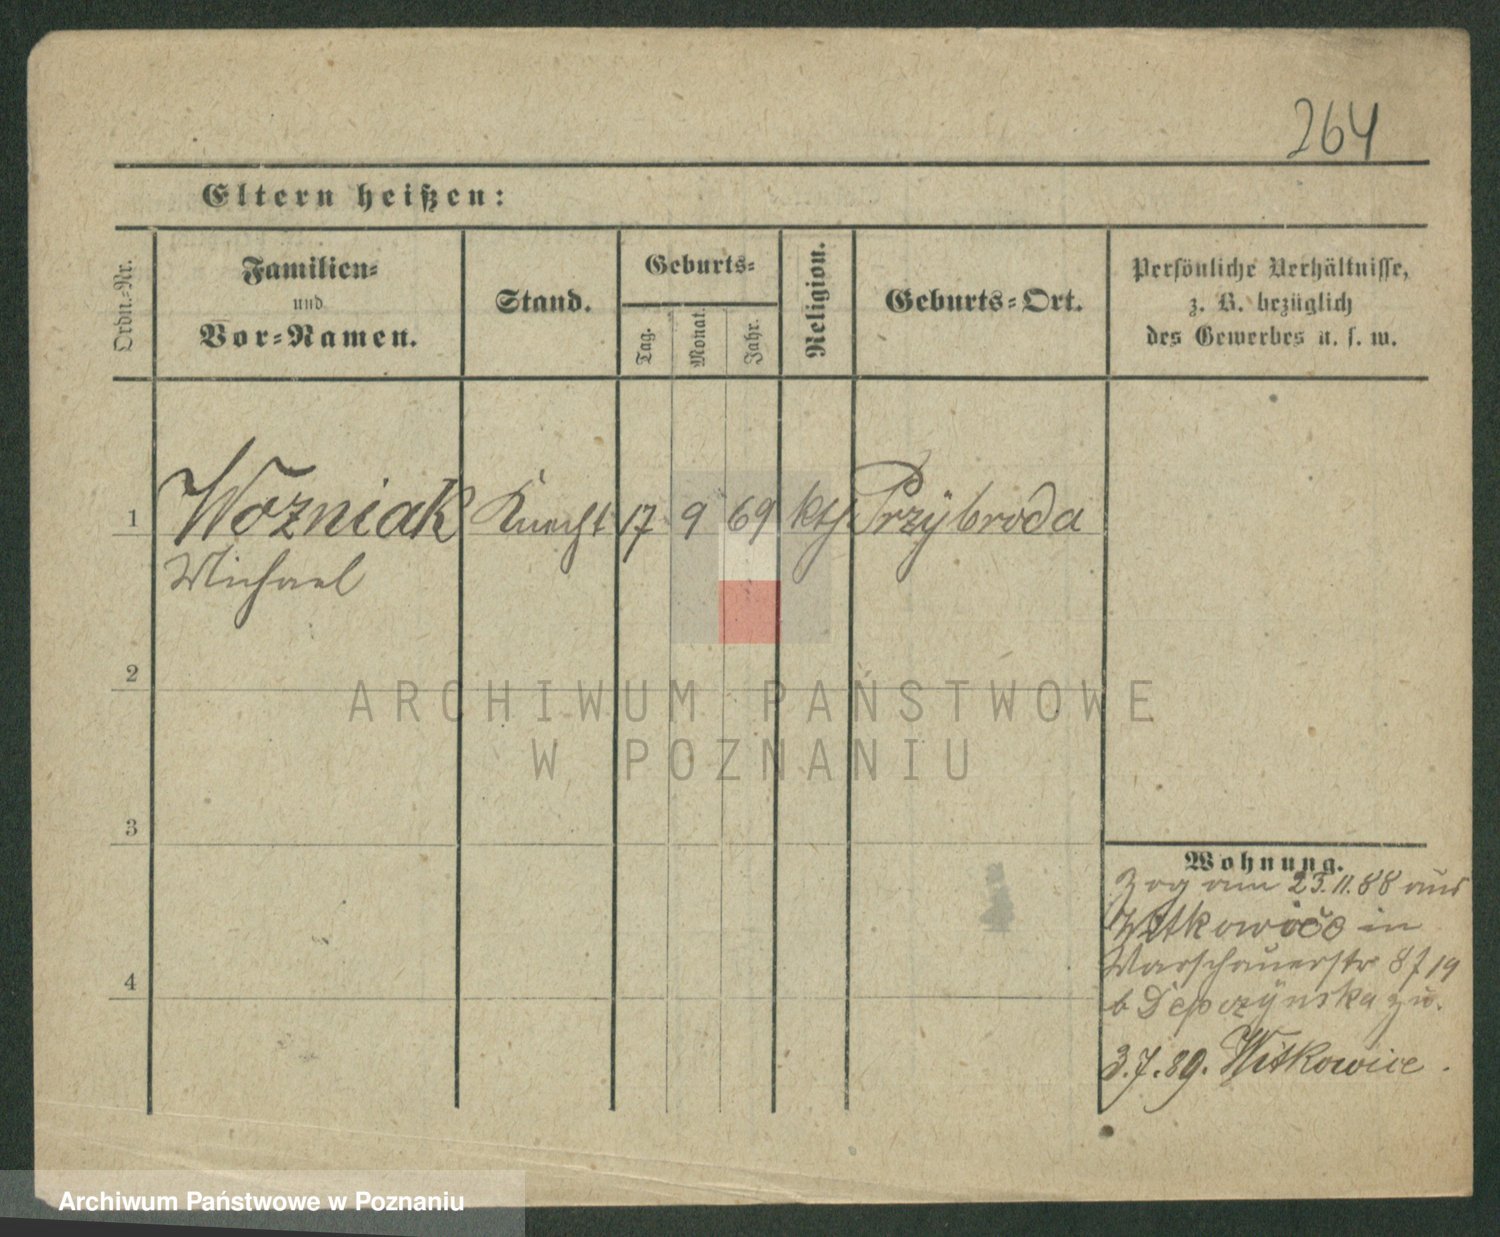 264
Eltern heißen:
Ordn.-Nr.
Familien-
und
Vor-Namen.
Stand.
Geburts-
Tag.
Monat.
Jahr.
Religion.
Geburts-Ort.
Persönliche Verhältnisse,
z. B. bezüglich
des Gewerbes u. s. w.
1 Wozniak Knecht 17 9 69 kth Przÿbroda
Michael
2
ARCHIWUM PAŃSTWOWE
W POZNANIU
3
Wohnung.
Zog am 23.11.88 aus
Witkowice in
Warschauerstr 8 f 19
b Depczÿnska zu.
4
3.7.89. Witkowice.
Archiwum Państwowe w Poznaniu